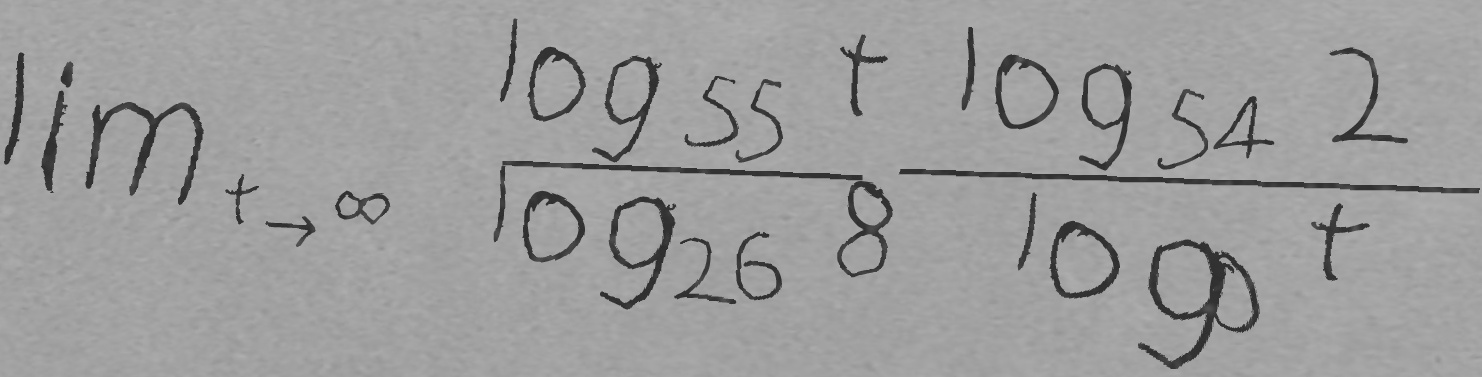 \lim_{t \to \infty} \frac{\log_{55} t}{\log_{26} 8} \frac{\log_{54} 2}{\log_{0} t}